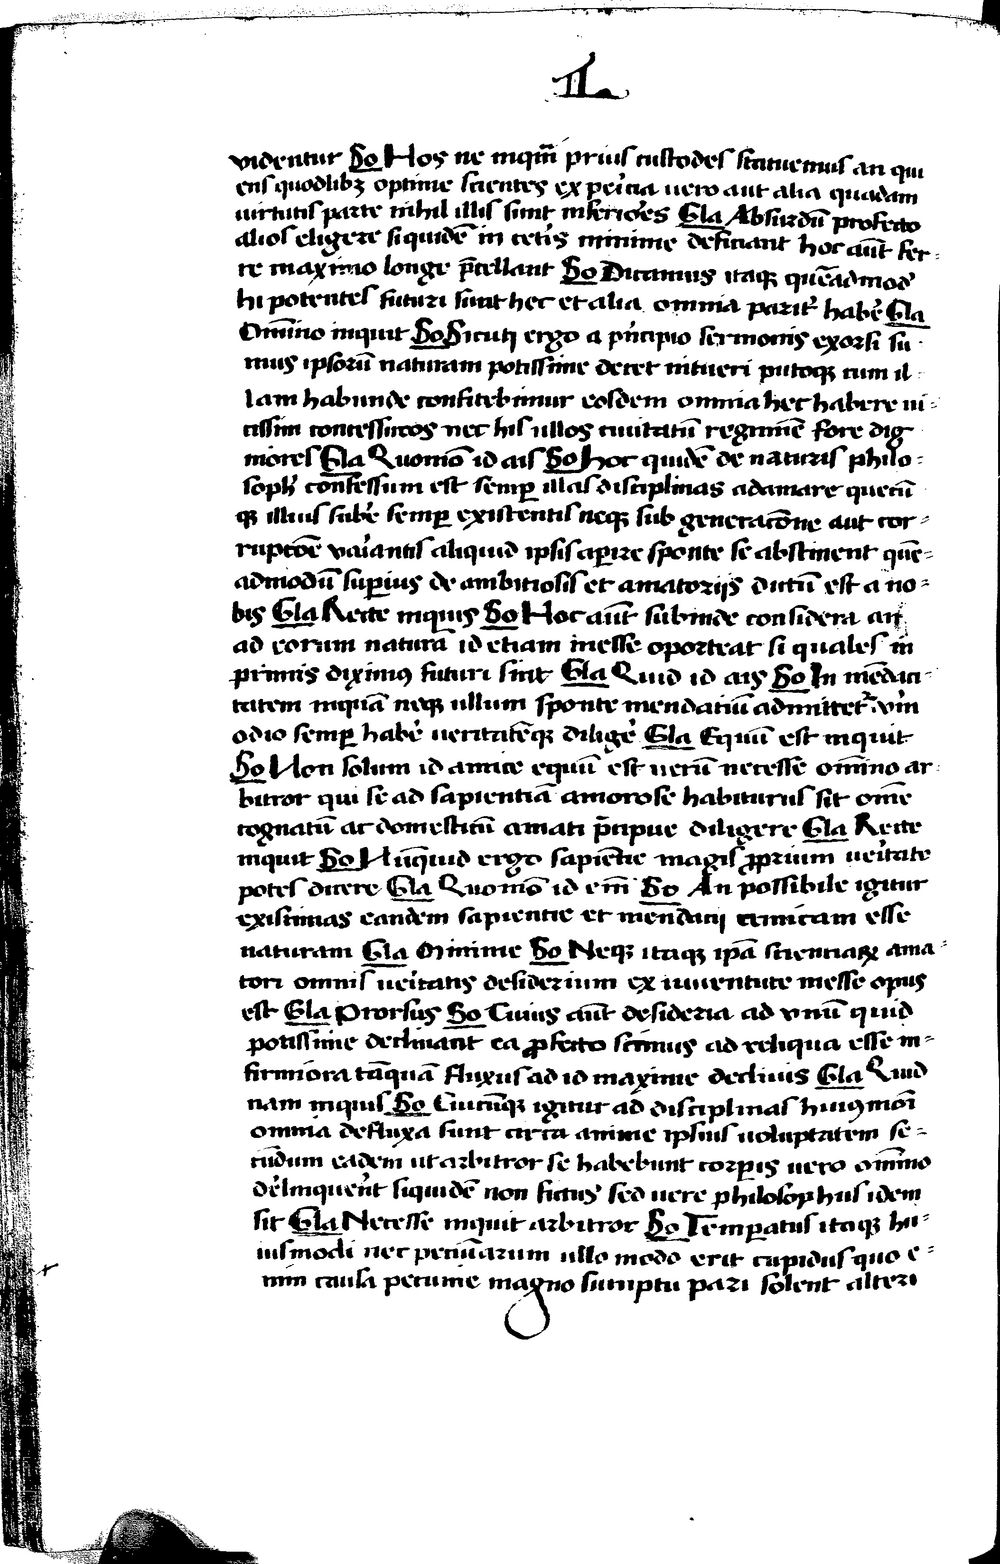 IL
videntur So Hos ne inqm̄ prius custodes statuemus an qui
ens quodlibꝫ optime scientes exper̄cia uero aut alia quadam
uirtutis parte nihil illis sunt inferiores Gla Absurdū profecto
alios eligere siquidē in cetīs minime deficiant hoc aūt fer-
re maximo longe p̄cellant So Dicamus itaqꝫ quēadmod̄
hi potentes futuri sunt hec et alia omnia parit̄ habē Gla
Om̄ino inquit So Sicuti ergo a p̄ncipio sermonis exorsi su
mus ipsorū naturam potissime decet intueri putoqꝫ cum il-
lam habunde confitebimur eosdem omnia hec habere ui-
cissim concessuros nec his illos ciuitatū regimē fore dig
niores Gla Quomō id ais So hoc quidē de naturis philo-
soph̄ confessum est semp̄ illas disciplinas adamare quecū
qꝫ illius sub̄e semp̄ existentis neqꝫ sub generacōne aut cor-
rupcōe vāiantis aliquid ipsis ap̄ire sponte se abstinent quē-
admodū sup̄ius de ambitiosis et amatorijs dictū est a no-
bis Gla Recte inquis So Hoc aūt subinde considera an
ad eorum naturā id etiam inesse oporteat si quales in
primis diximꝯ futuri sint Gla Quid id ais So In mēdaci-
tatem inquā neqꝫ ullum sponte mendatiū admittet̄
odio semp̄ habē ueritatēqꝫ diligē Gla Equū est inquit
So Non solum id amice equū est uerū necesse om̄ino ar-
bitror qui se ad sapientiā amorose habiturus sit om̄e
cognatū ac domesticū amati p̄cipue diligere Gla Recte
inquit So Nūquid ergo sapientie magis ꝓprium uēitate
potes dicere Gla Quomō id em̄ So An possibile igitur
existimas eandem sapientie et mendacij amicam esse
naturam Gla Minime So Neqꝫ itaqꝫ ip̄a scientiarꝫ ama-
tori omnis uēitatis desiderium ex iuuentute inesse opus
est Gla Prorsus So Cuius aūt desideria ad vnū quid
potissime declinant ea ꝓfecto scimus ad reliqua esse in-
firmiora tāquā fluxus ad id maxime decliuis Gla Quid
nam inquis So Cuicūqꝫ igitur ad disciplinas huiꝯmōi
omnia defluxa sunt circa anime ipsius uoluptatem se-
cūdum eadem ut arbitror se habebunt corp̄is uero om̄ino
dēlinquēnt siquidē non fictus sed uere philosophus idem
sit Gla Necesse inquit arbitror So Temperatus itaqꝫ hu-
iusmodi nec pecuniarum ullo modo erit cupidus quo e-
nim causa pecunie magno sumptu pari solent alteri